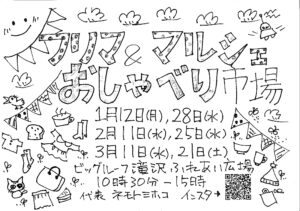 フリマ&マルシェ
おしゃべり市場
1月12日(月),28日(水)
2月11日(水),25日(水)
3月11日(水),21日(土)
ビッグルーフ滝沢 ふれあい広場
10時30分-15時
代表 ネモトミホコ インスタ→